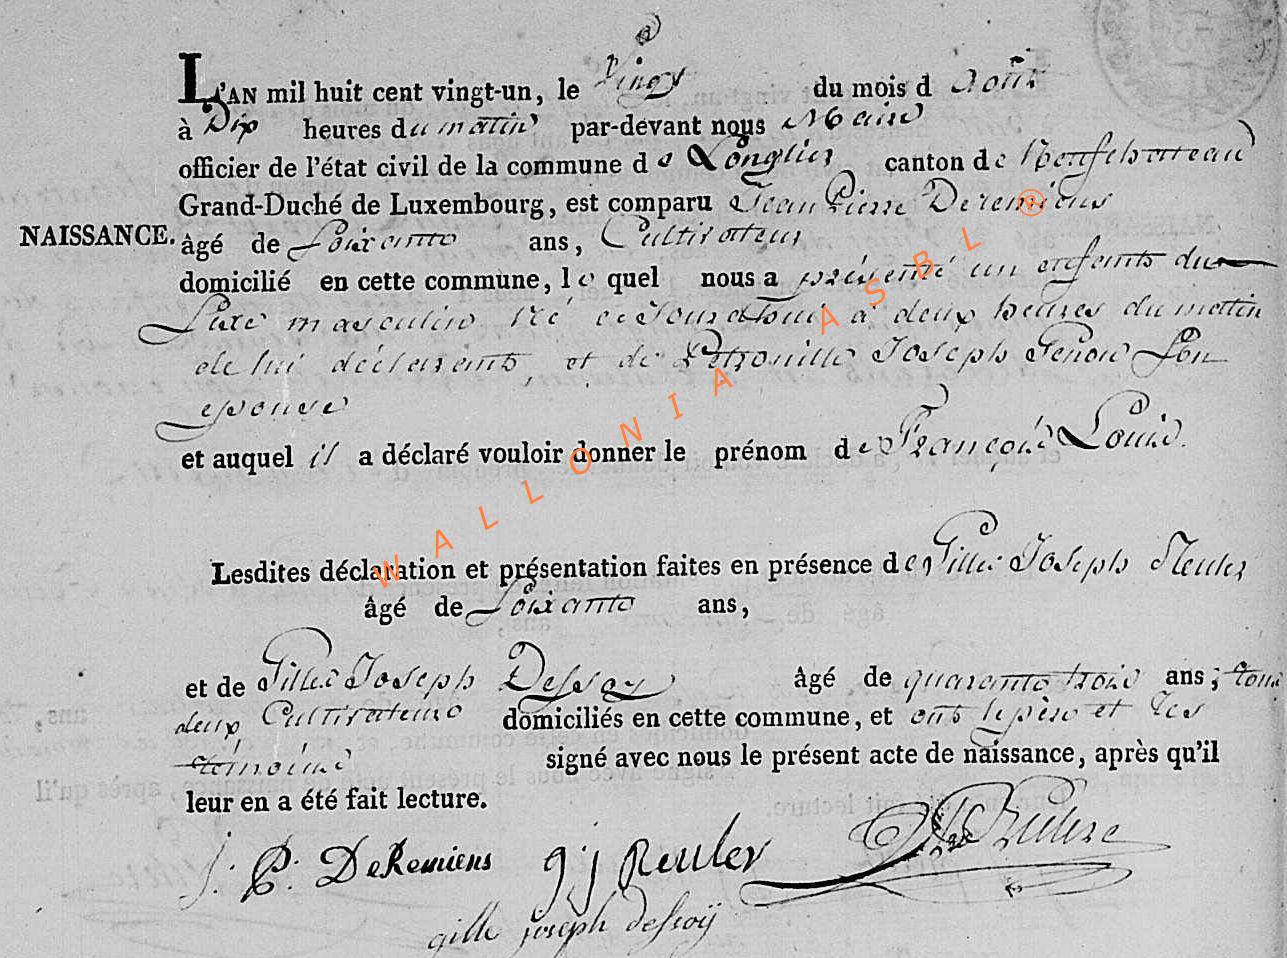 L'AN mil huit cent vingt-un, le Vingt du mois d Août
à Dix heures du matin par-devant nous Maire
officier de l'état civil de la commune de Longlier canton de Neufchateau
Grand-Duché de Luxembourg, est comparu Jean Pierre Deremiens
NAISSANCE. âgé de Soixante ans, Cultivateur
domicilié en cette commune, le quel nous a présenté un enfent du
Sexe masculin Né à deux heures du mattin
de lui déclarent, et de Petronille Joseph Son
epouse
et auquel il a déclaré vouloir donner le prénom de François Louis.
Lesdites déclaration et présentation faites en présence de Gille Joseph Reuler
âgé de Soixante ans,
et de Gille Joseph Dessoy âgé de quarante trois ans; tous
deux Cultivateurs domiciliés en cette commune, et ont le père et les
témoins signé avec nous le présent acte de naissance, après qu'il
leur en a été fait lecture.
J: P: DeRemiens g j Reuler
gille joseph dessoÿ
WALLONIA ASBL ®